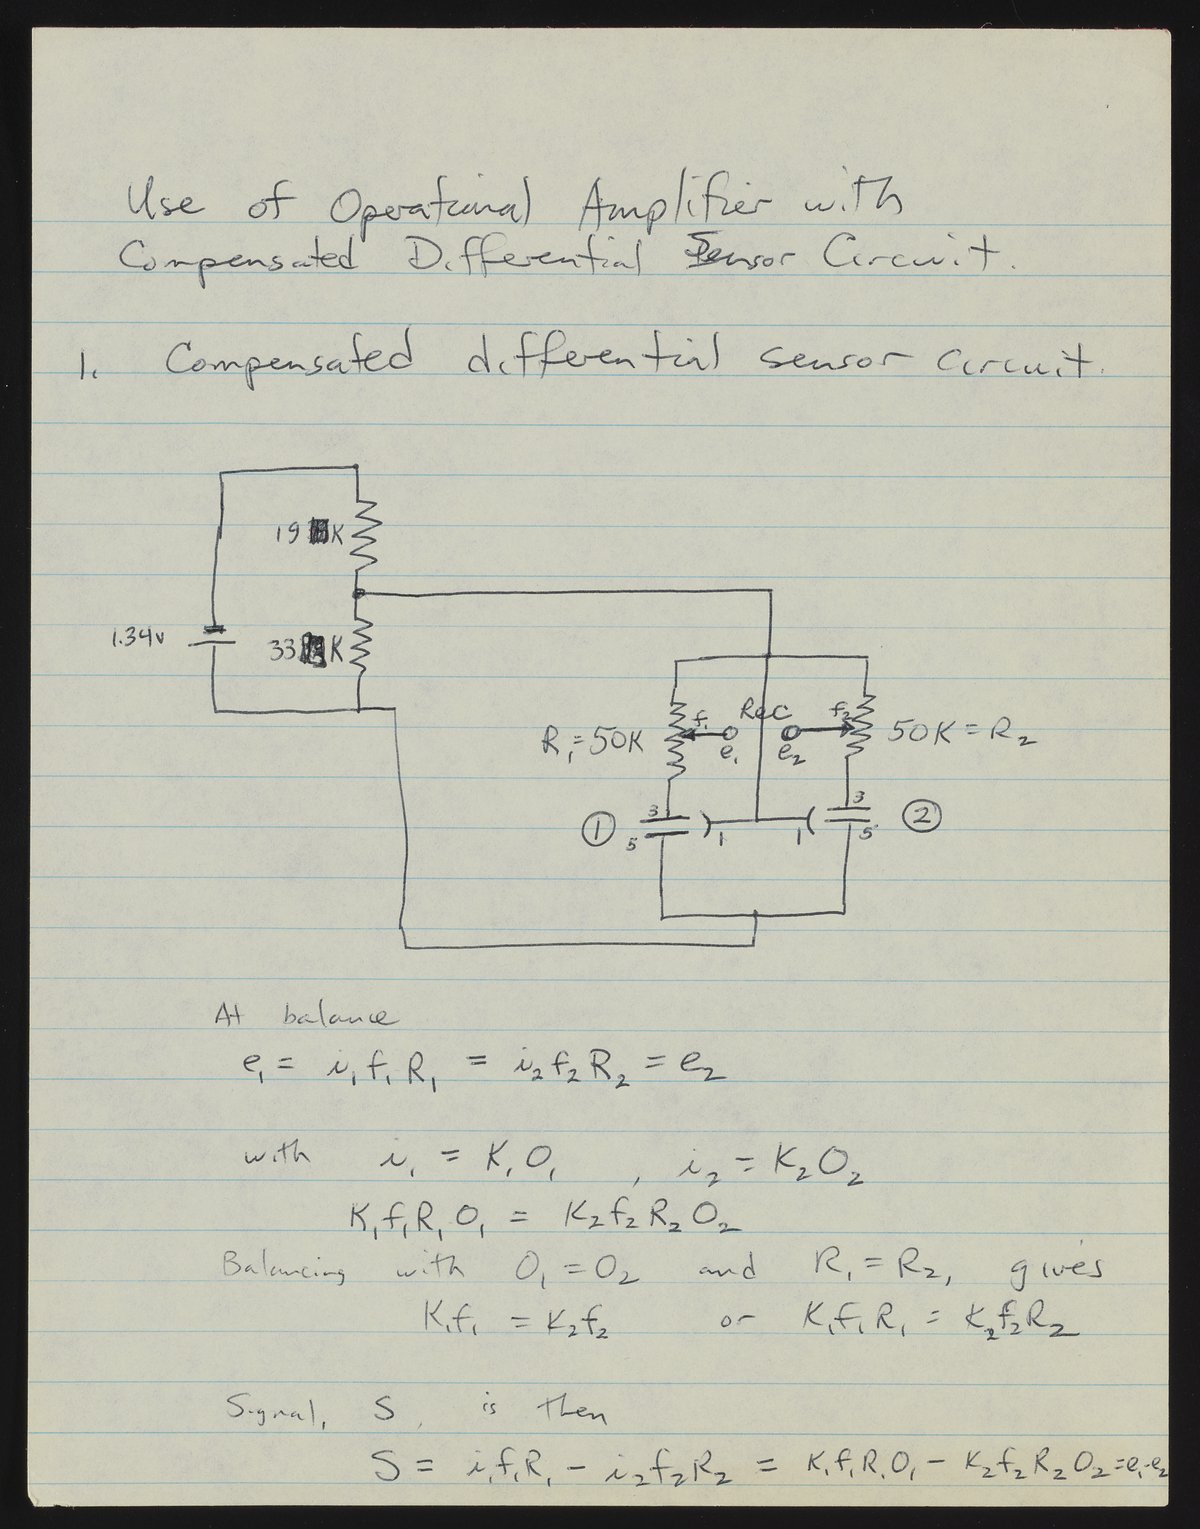 Use of Operational Amplifier with
Compensated Differential Sensor Circuit.
1. Compensated differential sensor circuit.
19 K
1.34v
33 K
R₁=50K
f₁
Rec
f₂
50K = R₂
e₁
e₂
① 3 5
1
1
3 5 ②
At balance
e₁ = i₁f₁R₁ = i₂f₂R₂ = e₂
with i₁ = K₁O₁ , i₂ = K₂O₂
K₁f₁R₁O₁ = K₂f₂R₂O₂
Balancing with O₁ = O₂ and R₁ = R₂, gives
K₁f₁ = K₂f₂ or K₁f₁R₁ = K₂f₂R₂
Signal, S, is then
S = i₁f₁R₁ - i₂f₂R₂ = K₁f₁R₁O₁ - K₂f₂R₂O₂ = e₁-e₂